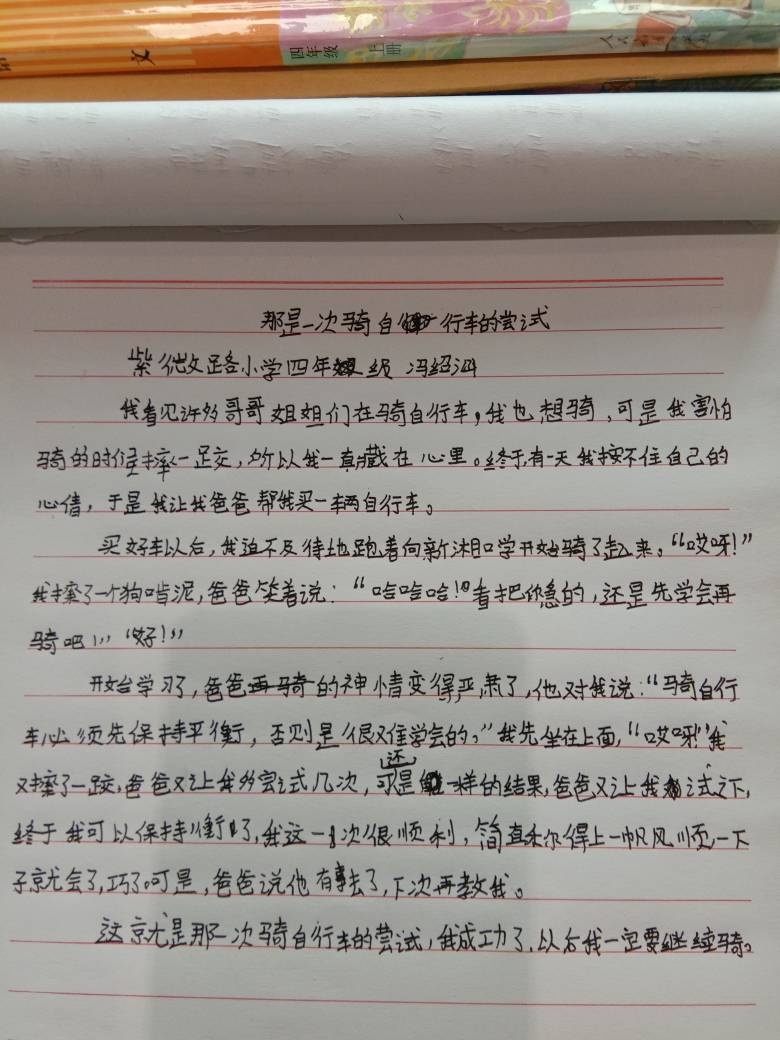 文
四年级 上册
那是一次骑自行车的尝试
紫微路小学四年级 冯绍
我看见许多哥哥姐姐们在骑自行车，我也想骑，可是我害怕
骑的时候摔一跤，所以我一直藏在心里。终于有一天我按不住自己的
心情，于是我让我爸爸帮我买一辆自行车。
买好车以后，我迫不及待地跑着向新湖口学开始骑了起来。“哎呀！”
我摔了一个狗啃泥，爸爸笑着说：“哈哈哈！看把你急的，还是先学会再
骑吧！”“好！”
开始学习了，爸爸的神情变得严肃了，他对我说：“骑自行
车必须先保持平衡，否则是很难学会的。”我先坐在上面，“哎呀！”我
又摔了一跤，爸爸又让我多尝试几次，还是一样的结果，爸爸又让我试之下，
终于我可以保持衡了，我这一次很顺利，简直称得上一帆风顺，一下
子就会了，巧了。可是，爸爸说他有事去了，下次再教我。
这就是那一次骑自行车的尝试，我成功了，以后我一定要继续骑。